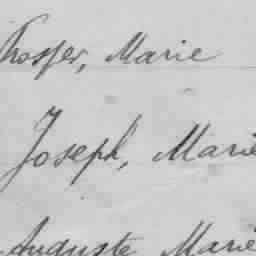 Prosper, Marie
Joseph, Marie
Auguste Marie